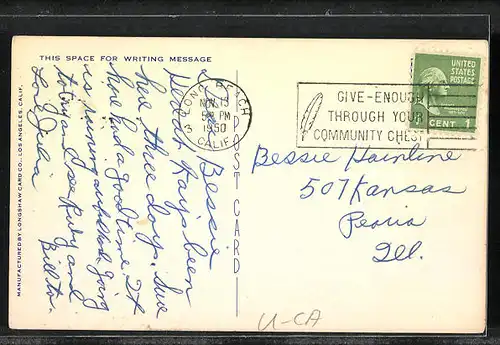 THIS SPACE FOR WRITING MESSAGE
Bessie
Hera Kay's been
here three days. Sure
have had a good time. It
is raining and
to try and see Ruby and
Bill to.
Love Julia
MANUFACTURED BY LONGSHAW CARD CO. - LOS ANGELES, CALIF.
POST CARD
LONG BEACH
NOV 13
PM
1950
CALIF.
3
GIVE-ENOUGH
THROUGH YOUR
COMMUNITY CHEST
UNITED
STATES
POSTAGE
CENT 1
Bessie Hainline
507 Kansas
Peoria
Ill.
U-CA